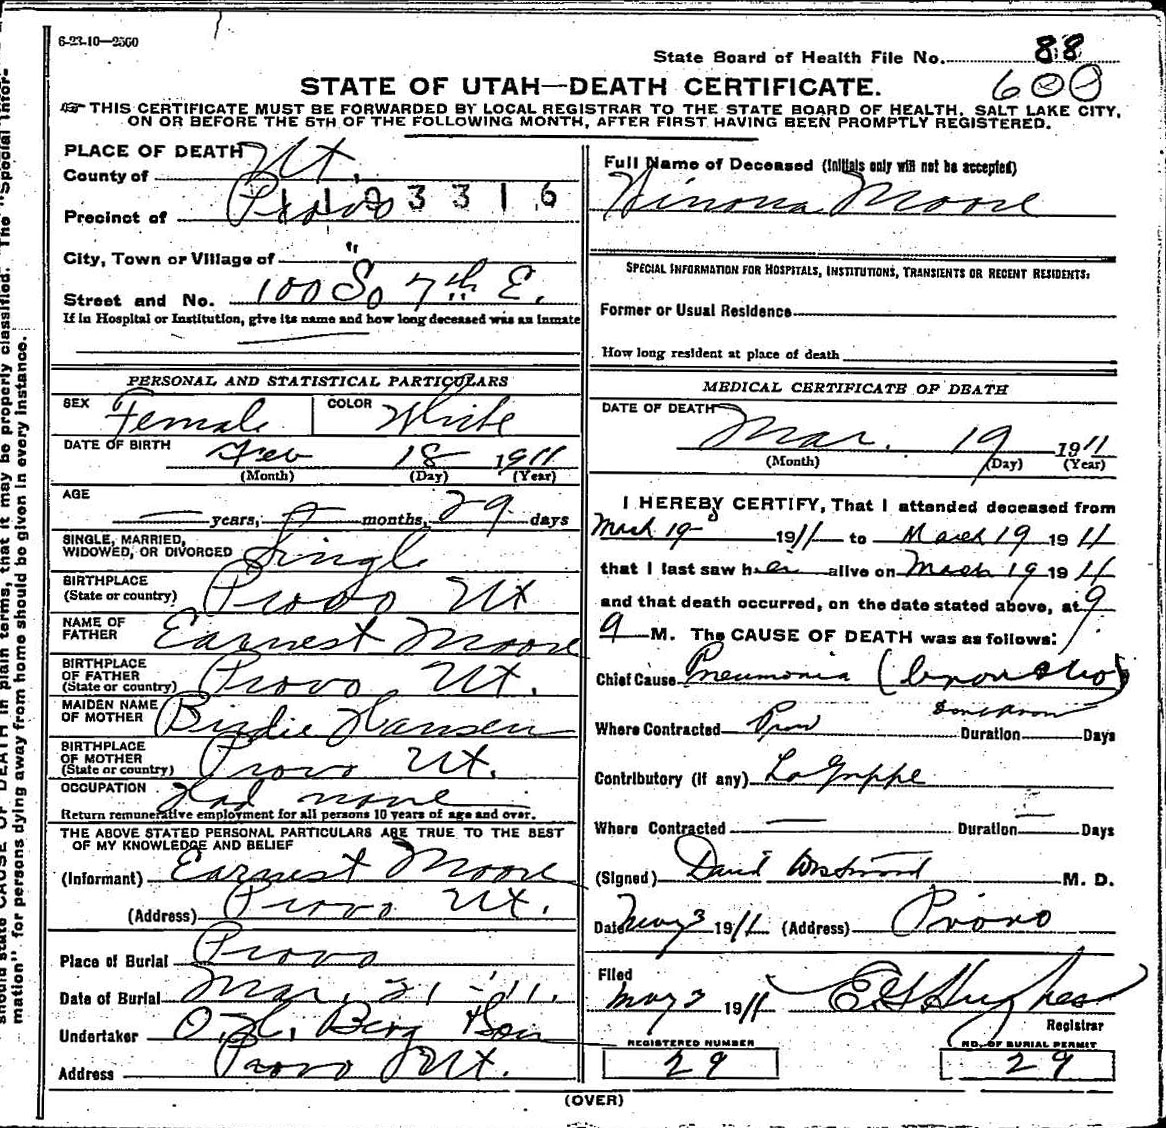 6-23-10—2560
State Board of Health File No. 88
600
STATE OF UTAH—DEATH CERTIFICATE.
THIS CERTIFICATE MUST BE FORWARDED BY LOCAL REGISTRAR TO THE STATE BOARD OF HEALTH, SALT LAKE CITY,
ON OR BEFORE THE 5TH OF THE FOLLOWING MONTH, AFTER FIRST HAVING BEEN PROMPTLY REGISTERED.
PLACE OF DEATH
County of Ut.
Precinct of Provo
3 3 1 6
City, Town or Village of "
Street and No. 100 So 7th E.
If in Hospital or Institution, give its name and how long deceased was an inmate
PERSONAL AND STATISTICAL PARTICULARS
SEX Female COLOR White
DATE OF BIRTH Feb 18 1911
(Month) (Day) (Year)
AGE
— years, months, 29 days
SINGLE, MARRIED,
WIDOWED, OR DIVORCED Single
BIRTHPLACE
(State or country) Provo Ut
NAME OF
FATHER Earnest Moore
BIRTHPLACE
OF FATHER
(State or country) Provo, Ut.
MAIDEN NAME
OF MOTHER Birdie Hansen
BIRTHPLACE
OF MOTHER
(State or country) Provo Ut.
OCCUPATION Had none
Return remunerative employment for all persons 10 years of age and over.
THE ABOVE STATED PERSONAL PARTICULARS ARE TRUE TO THE BEST
OF MY KNOWLEDGE AND BELIEF
(Informant) Earnest Moore
(Address) Provo Ut.
Place of Burial Provo
Date of Burial Mar. 21 - '11.
Undertaker O.H. Berg & Son
Address Provo Ut.
Full Name of Deceased (Initials only will not be accepted)
Winona Moore
SPECIAL INFORMATION FOR HOSPITALS, INSTITUTIONS, TRANSIENTS OR RECENT RESIDENTS:
Former or Usual Residence
How long resident at place of death
MEDICAL CERTIFICATE OF DEATH
DATE OF DEATH
Mar. 19 1911
(Month) (Day) (Year)
I HEREBY CERTIFY, That I attended deceased from
March 19 1911 to March 19 1911
that I last saw her alive on March 19 1911
and that death occurred, on the date stated above, at 9
M. The CAUSE OF DEATH was as follows:
Chief Cause Pneumonia (
Where Contracted Prov Duration Days
Contributory (if any) La Grippe
Where Contracted — Duration — Days
(Signed) David Westwood M. D.
Date May 3 1911 (Address) Provo
Filed
May 3 1911 E H Hughes
Registrar
REGISTERED NUMBER
29
NO. OF BURIAL PERMIT
29
(OVER)
should state CAUSE OF DEATH in plain terms, that it may be properly classified. The "Special Infor-
mation" for persons dying away from home should be given in every instance.